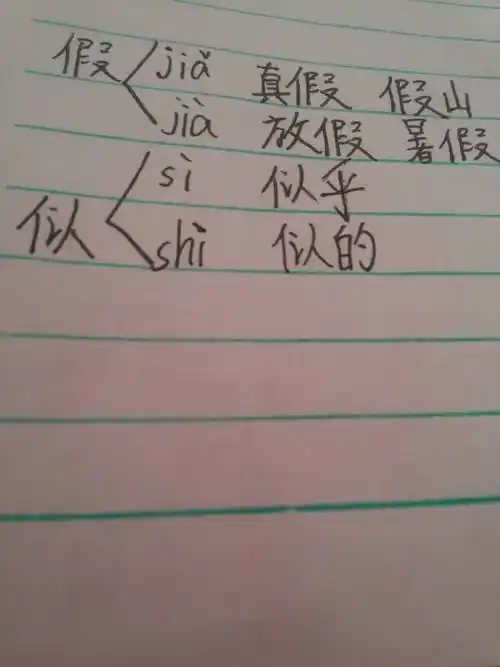 假 jiǎ 真假 假山
jià 放假 暑假
似 sì 似乎
shì 似的